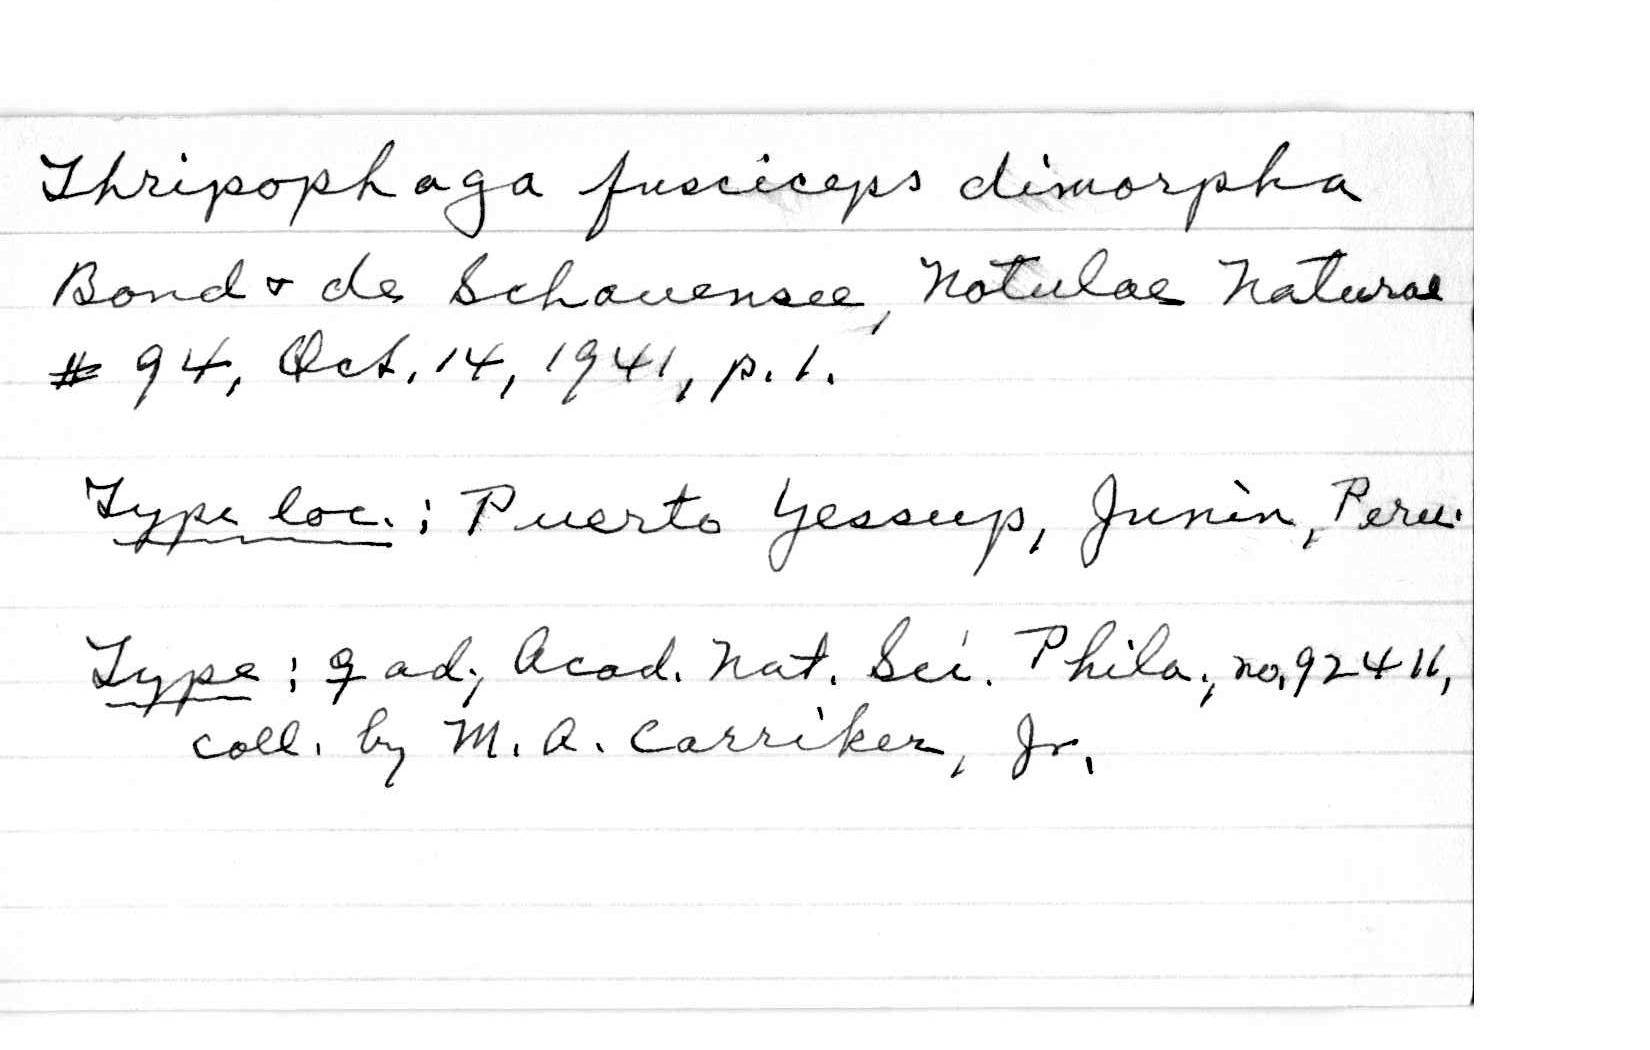 Thripophaga fusciceps dimorpha
Bond & de Schauensee, Notulae Naturae
# 94, Oct. 14, 1941, p. 1.
Type loc.: Puerto Yessup, Junin, Peru.
Type: ♀ ad., Acad. Nat. Sci. Phila., no. 92411,
coll. by M. A. Carriker, Jr.